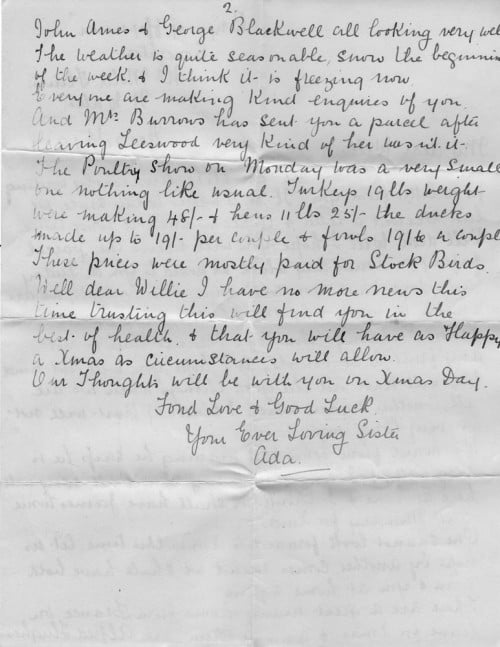 2.
John Ames & George Blackwell all looking very well
The weather is quite seasonable, snow the beginning
of the week. & I think it is freezing now
Everyone are making kind enquires of you.
And Mrs Burrows has sent you a parcel after
leaving Leeswood very kind of her wasn't it.
The Poultry Show on Monday was a very small
one nothing like usual. Turkeys 19 lbs weight
were making 48/- & hens 11 lbs 25/- the ducks
made up to 19/- per couple & fowls 19/6 a couple
These prices were mostly paid for Stock Birds.
Well dear Willie I have no more news this
time trusting this will find you in the
best of health, & that you will have as Happy
a Xmas as circumstances will allow.
Our Thoughts will be with you on Xmas Day.
Fond Love & Good Luck,
Your Ever Loving Sister
Ada.